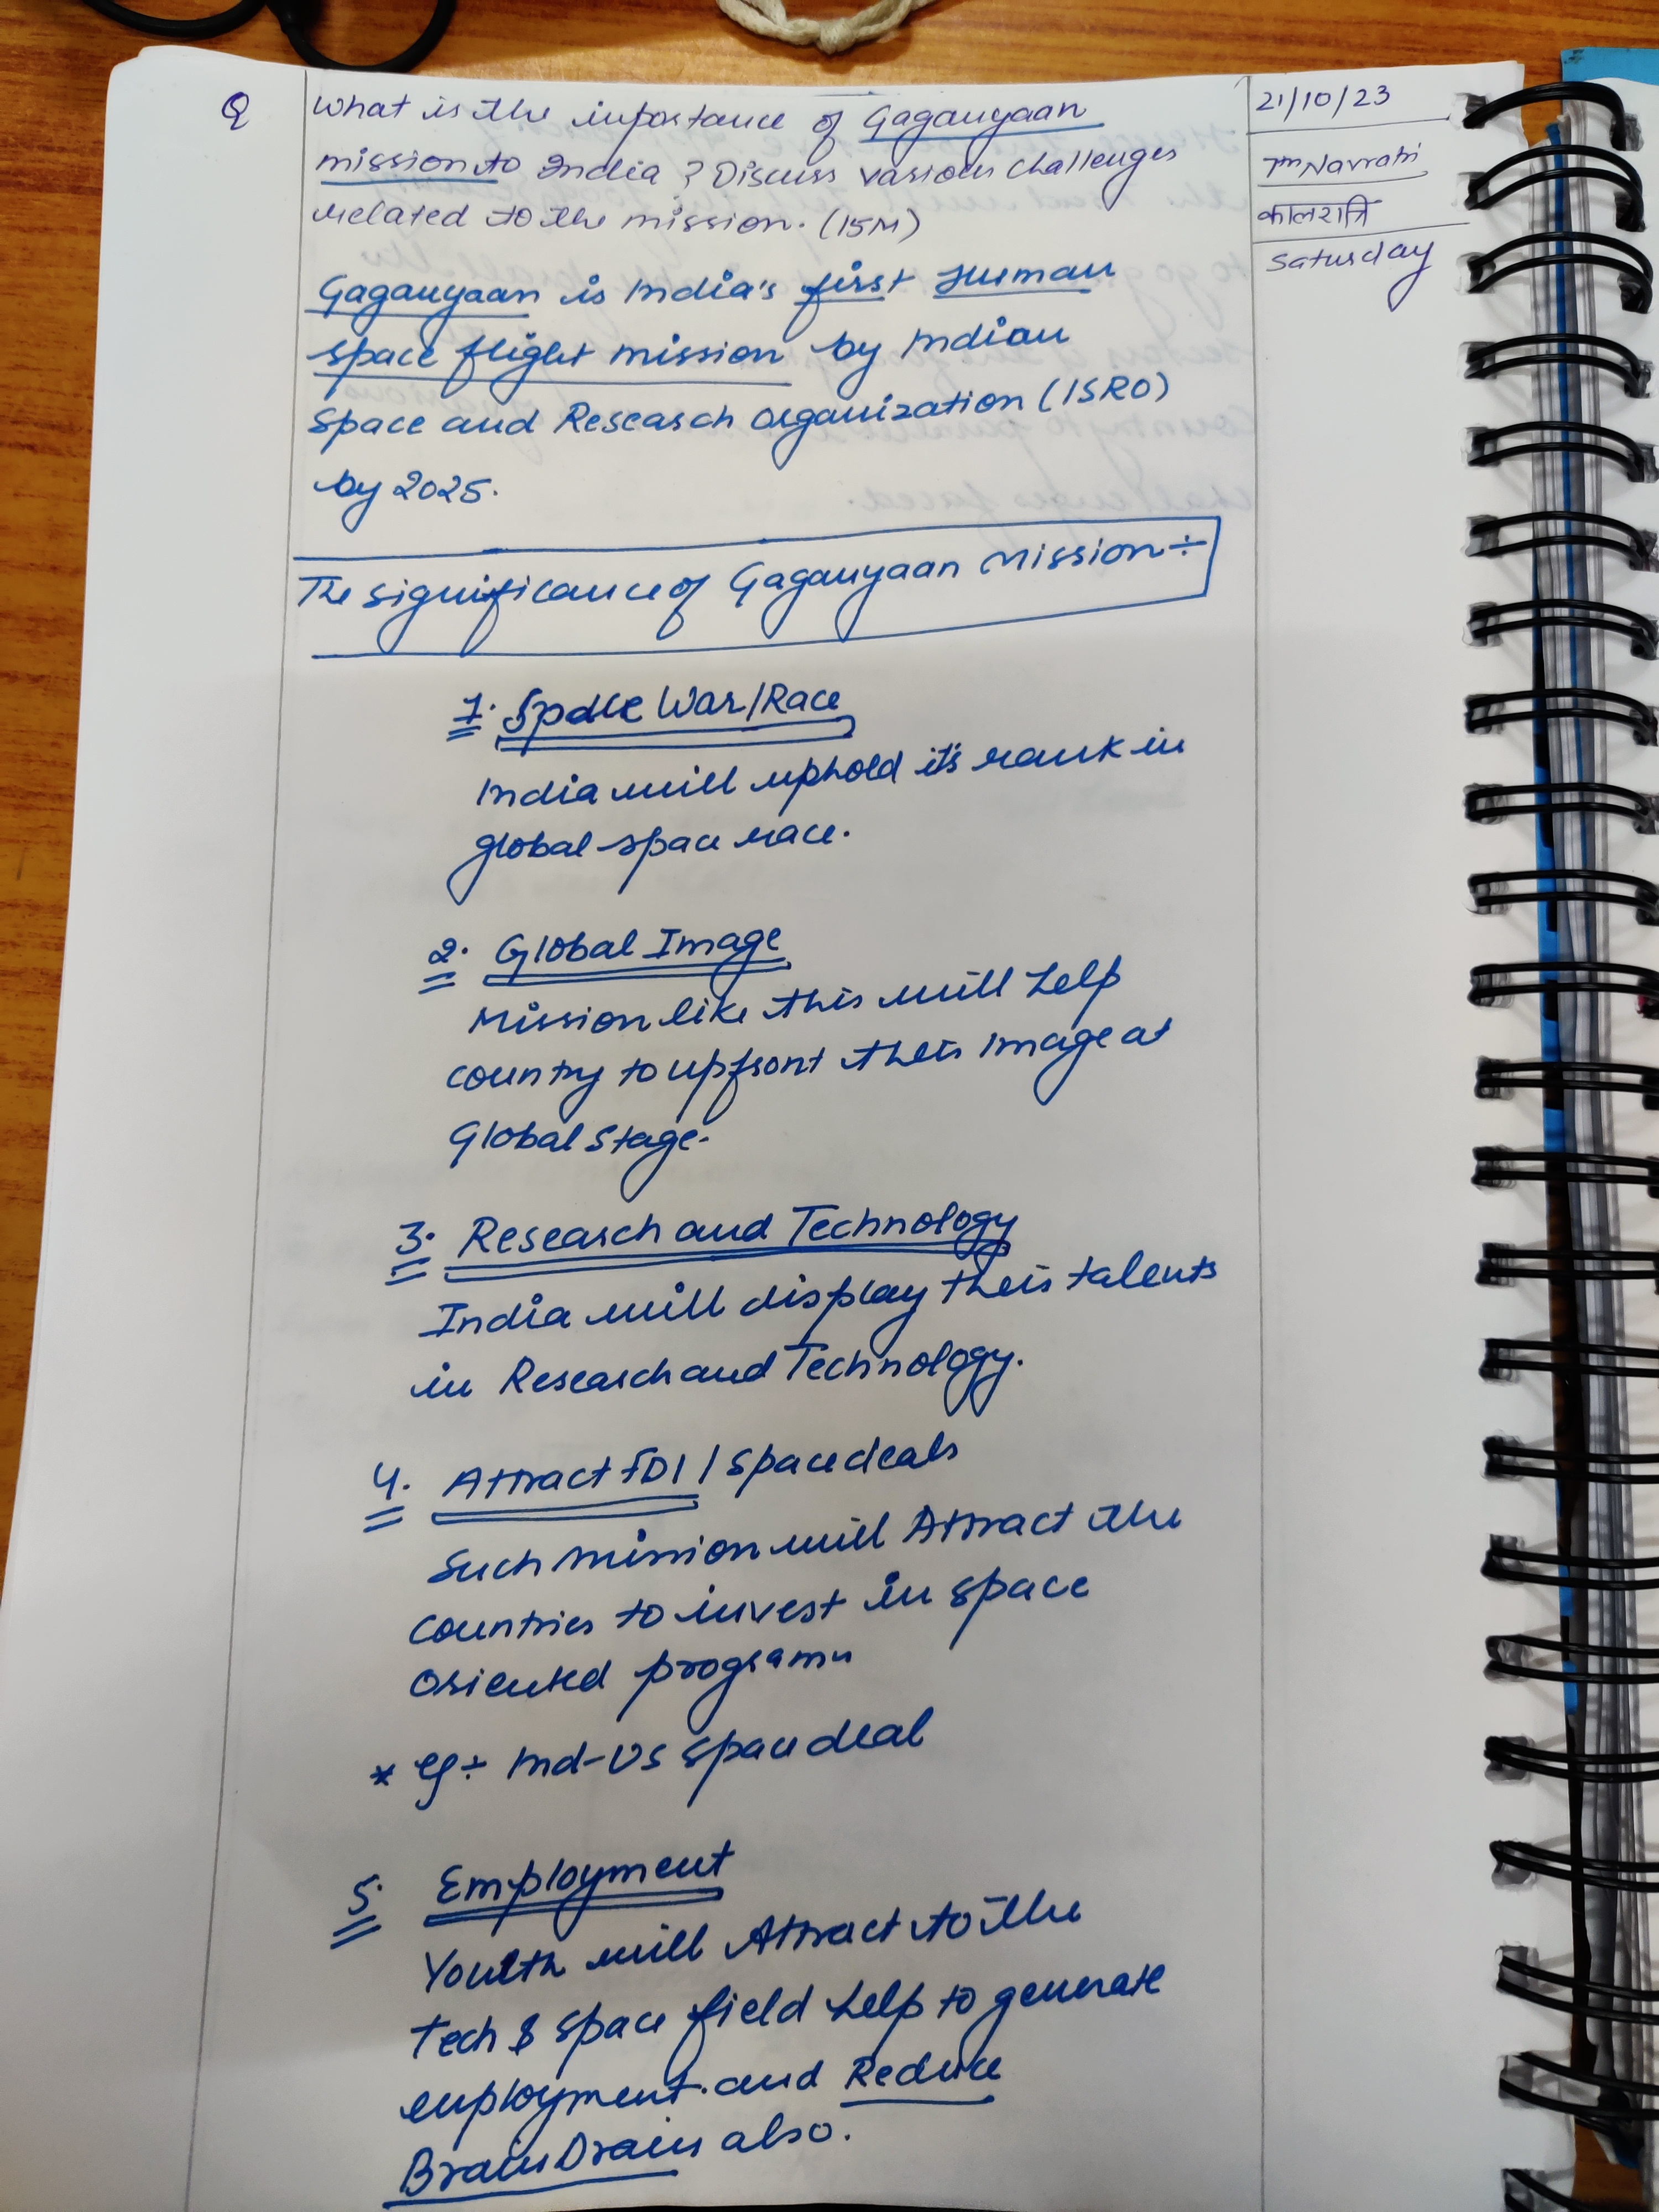 Q What is the importance of Gaganyaan
mission to India ? Discuss various challenges
related to the mission. (15M)
21/10/23
7th Navratri
कालरात्रि
Saturday
Gaganyaan is India's first Human
space flight mission by Indian
Space and Research Organization (ISRO)
by 2025.
The significance of Gaganyaan Mission ÷
1. Space War/Race
India will uphold it's rank in
global space race.
2. Global Image
Mission like this will help
country to upfront their image at
Global Stage.
3. Research and Technology
India will display their talents
in Research and Technology.
4. Attract FDI / Space deals
Such mission will Attract the
countries to invest in space
oriented programs
* eg ÷ Ind-US space deal
5. Employment
Youth will Attract to the
Tech & space field help to generate
employment. and Reduce
Brain Drain also.